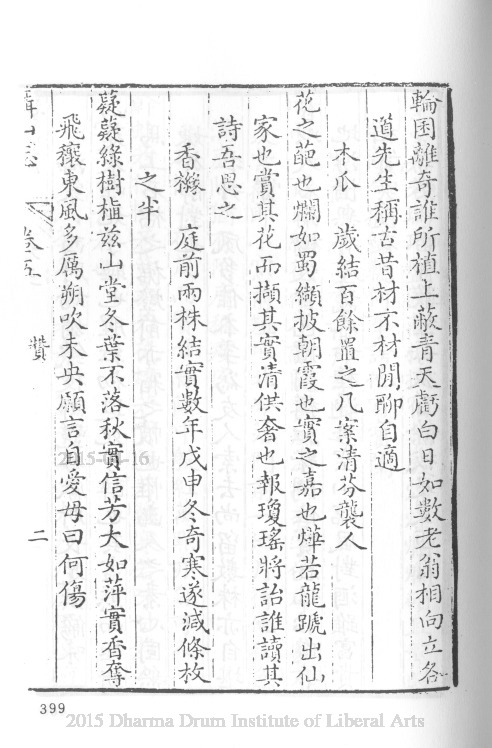 輪囷離奇誰所植上蔽青天虧白日如數老翁相向立各
道先生稱古昔材不材閒聊自適
木瓜　歲結百餘置之几案清芬襲人
花之葩也爛如蜀纈披朝霞也實之嘉也燁若龍號出仙
家也賞其花而擷其實清供奢也報瓊瑤將詒誰讀其
詩吾思之
香櫞　庭前兩株結實數年戊申冬奇寒遂減條枚
之半
薿薿綠樹植茲山堂冬葉不落秋實信芳大如萍實香奪
飛穰東風多厲朔吹未央願言自愛毋曰何傷
山志　卷五　贊　二
399
2015-04-16
2015 Dharma Drum Institute of Liberal Arts